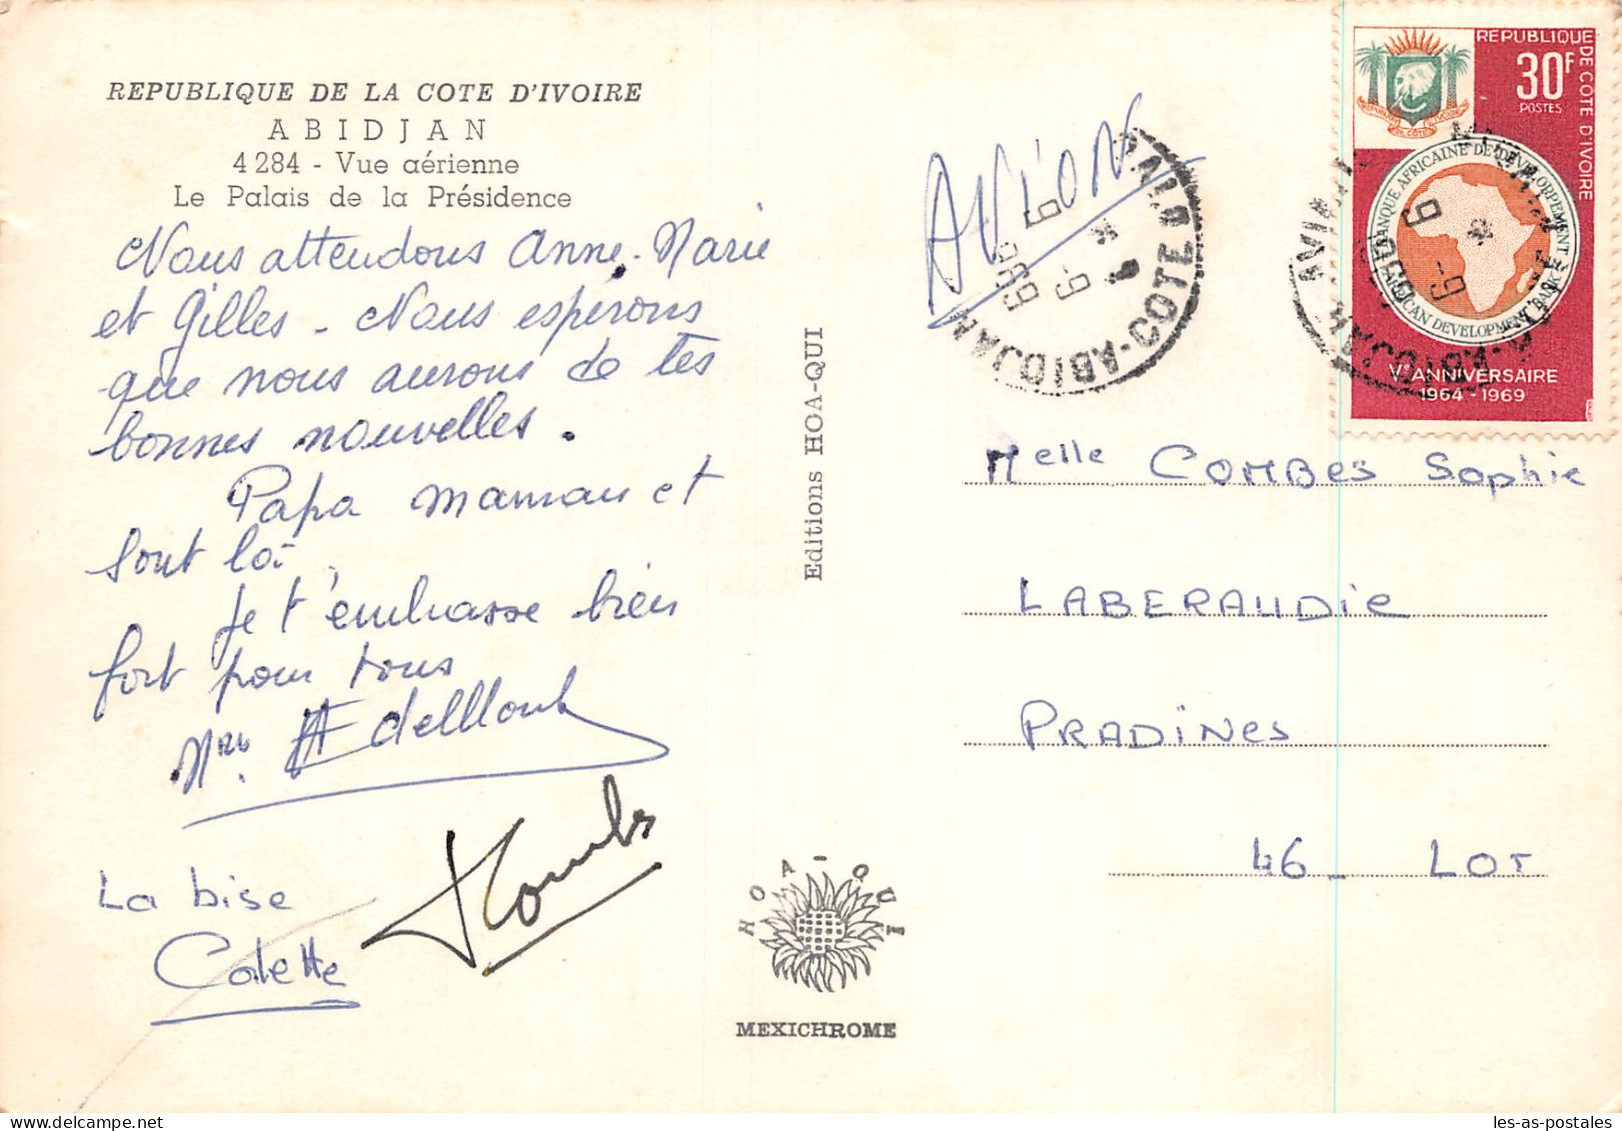 REPUBLIQUE DE LA COTE D'IVOIRE
ABIDJAN
4284 - Vue aérienne
Le Palais de la Présidence
Nous attendons Anne-Marie
et Gilles - Nous espérons
que nous aurons de tes
bonnes nouvelles.
Papa maman et
sont là
Je t'embrasse bien
fort pour tous
La bise
Colette
Editions HOA-QUI
HOA-QUI
MEXICHROME
AVION
ABIDJAN
ABIDJAN-COTE D
6-9
1969
REPUBLIQUE DE COTE D'IVOIRE
30F
POSTES
BANQUE AFRICAINE DE DEVELOPPEMENT
AFRICAN DEVELOPMENT BANK
Ve ANNIVERSAIRE
1964-1969
Melle COMBES Sophie
LABERAUDIE
PRADINES
46_ LOT
les-as-postales